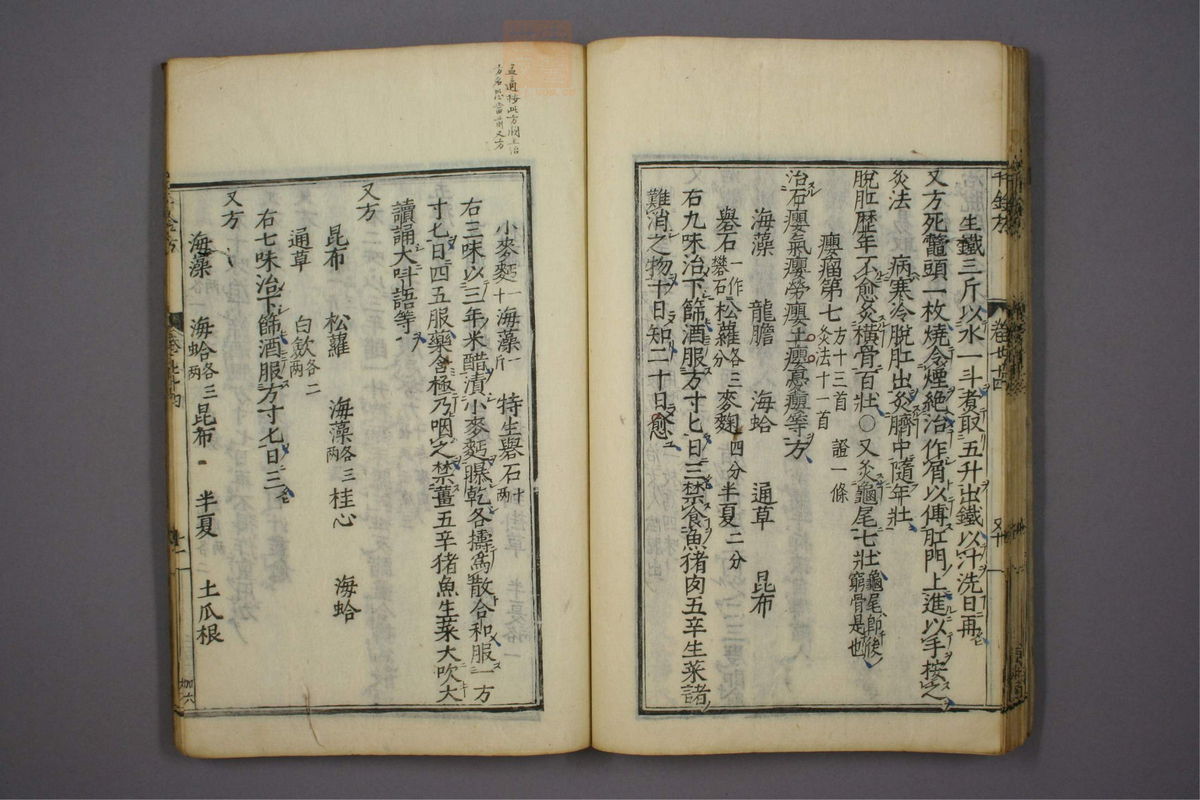 生鐵三斤以水一斗煮取五升出鐵以汁洗日再
又方死鼈頭一枚燒令煙絶治作屑以傅肛門上進以手按之
灸法 病寒冷脫肛出灸臍中隨年壯
脫肛歷年不愈灸橫骨百壯〇又灸龜尾七壯龜尾即後窮骨是也
癭瘤第七方十三首 證一條 灸法十一首
治石癭氣癭勞癭土癭憂癭等方
海藻 龍膽 海蛤 通草 昆布
礜石一作礬石 松蘿各三分 麥麴四分 半夏二分
右九味治下篩酒服方寸匕日三禁食魚猪肉五辛生菜諸
難消之物十日知二十日愈
孟通按此方闕主治
小麥麪一十 海藻一斤 特生礜石十兩
右三味以三年米醋漬小麥麪曝乾各擣爲散合和服一方
寸匕日四五服藥含極乃咽之禁薑五辛猪魚生菜大吹大
讀誦大叫語等
又方
昆布 松蘿 海藻各三兩 桂心 海蛤
通草 白歛各二兩
右七味治下篩酒服方寸匕日三
又方
海藻 海蛤各三兩 昆布 半夏 土瓜根